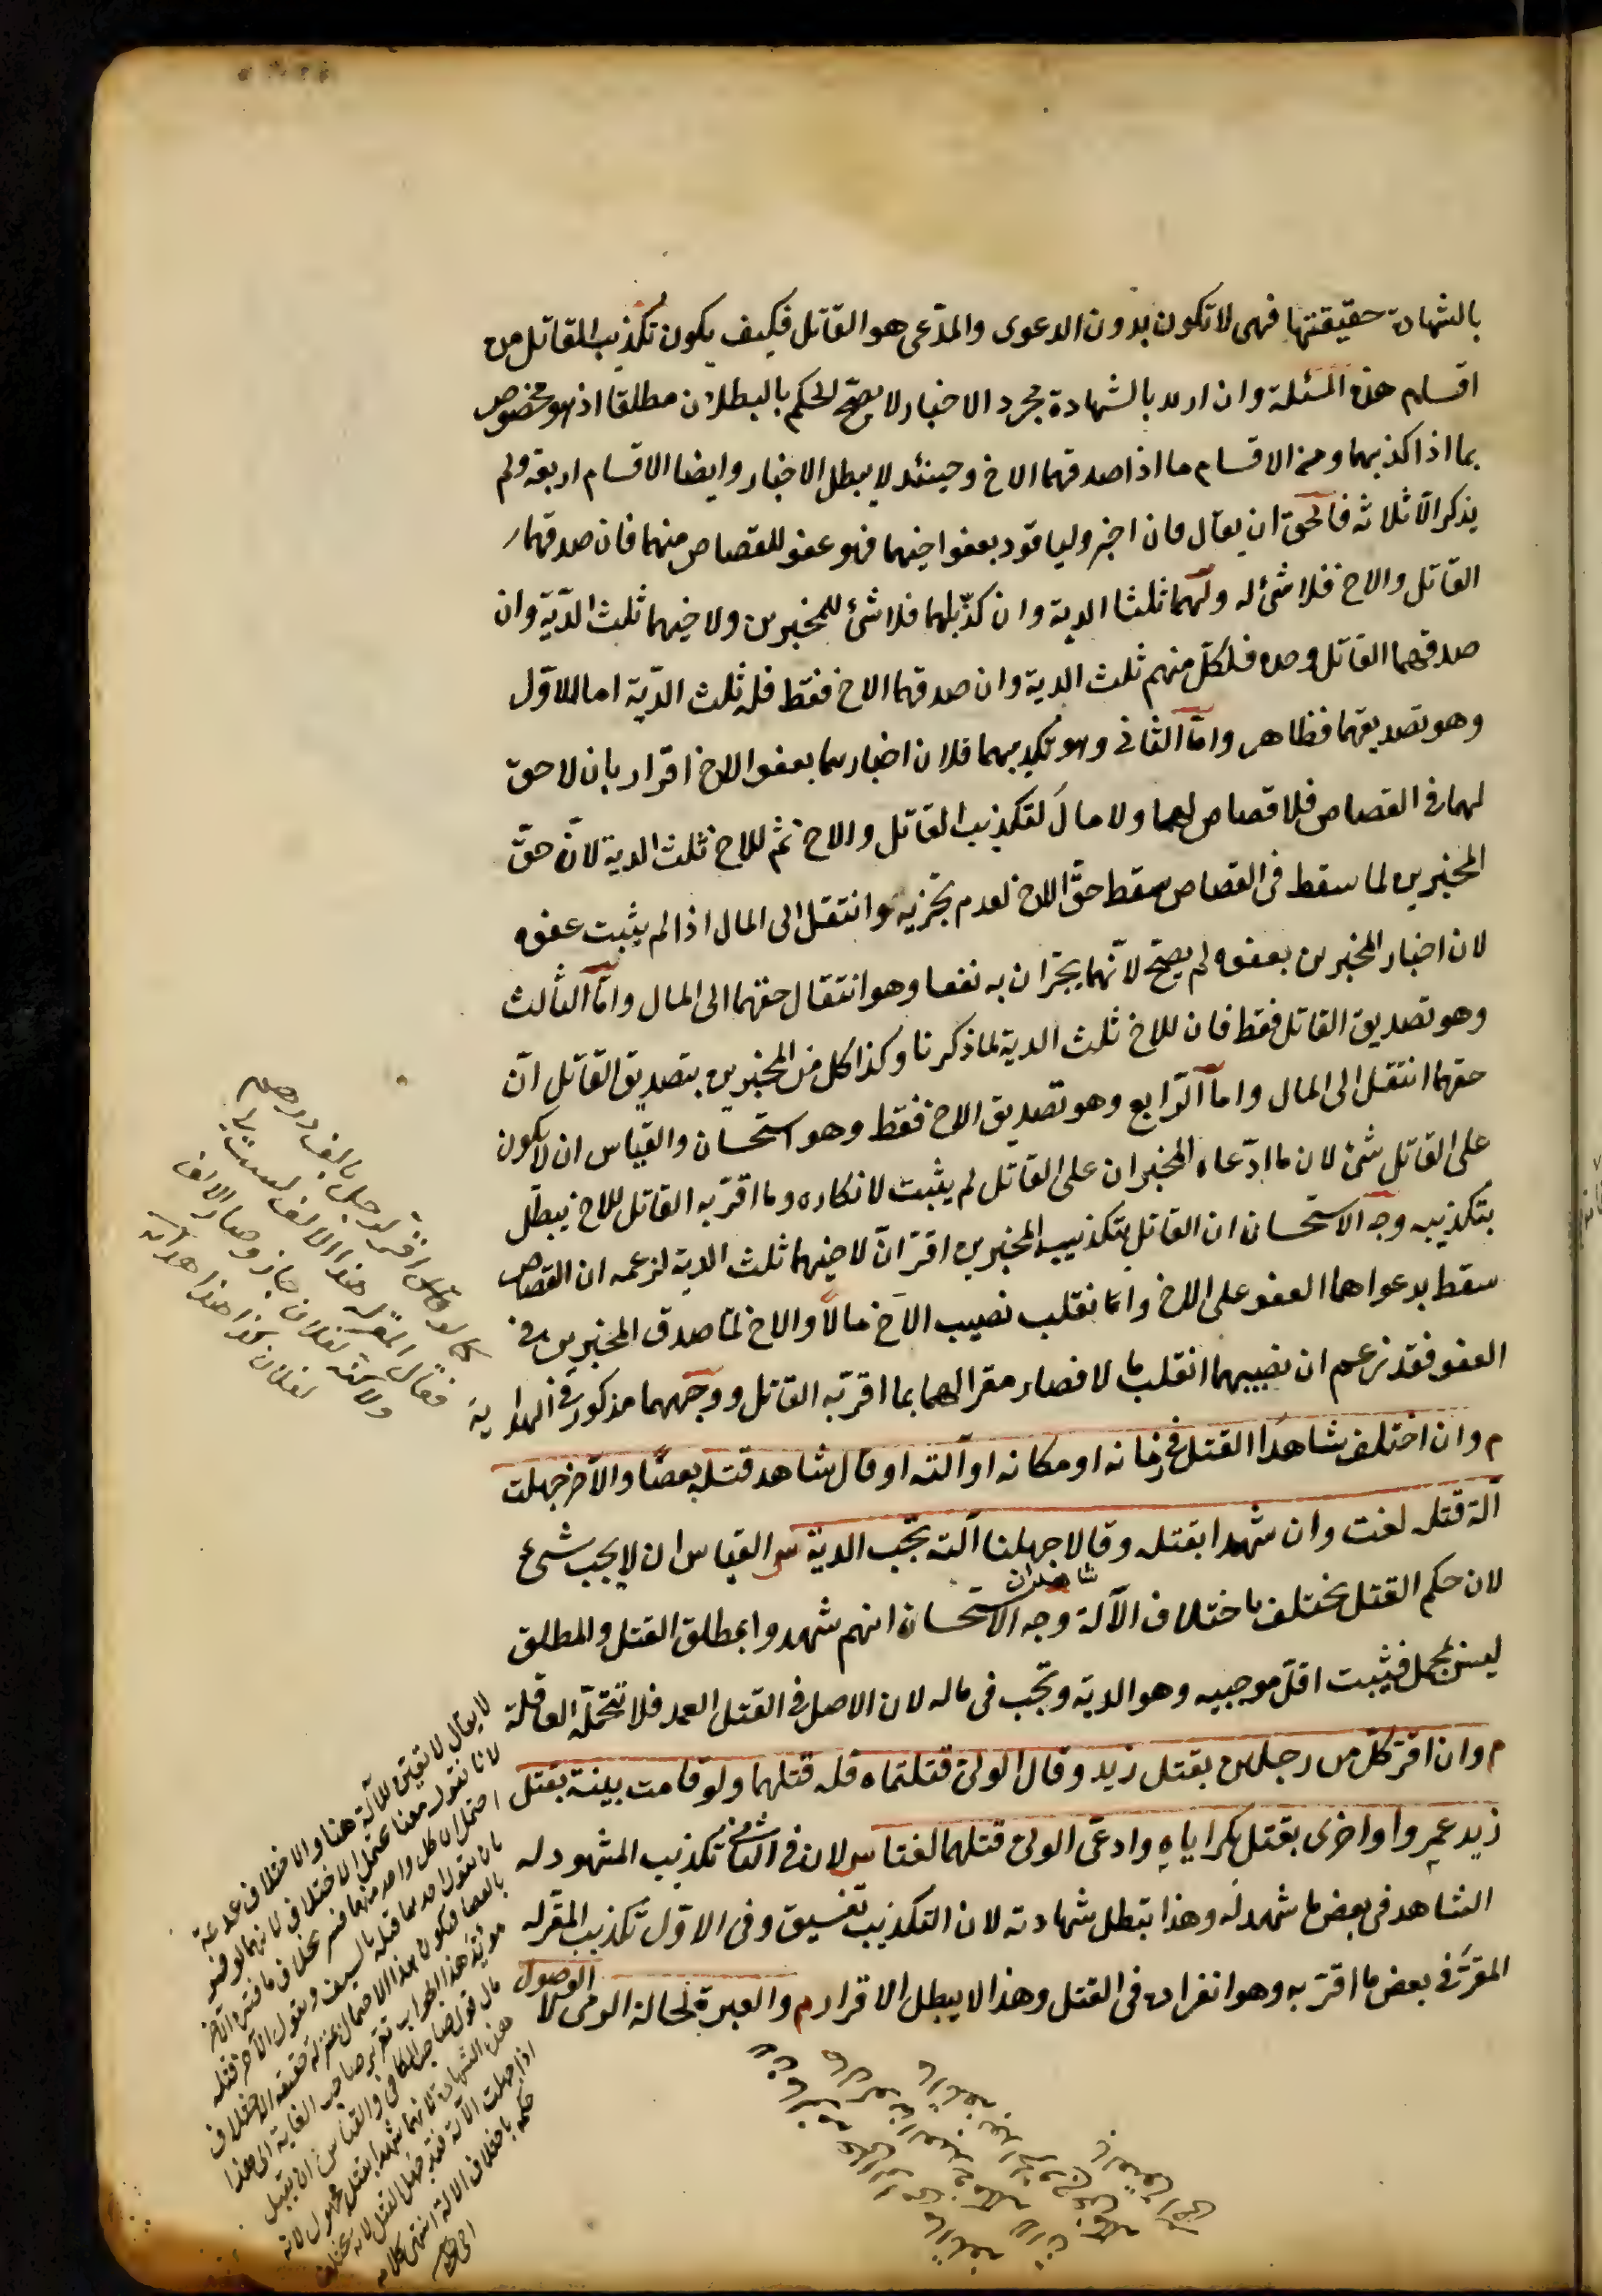 بالشهادة حقيقتها فهى لا تكون بدون الدعوى والمدّعى هو القاتل فكيف يكون تكذيب القاتل من
اقسام هذه المسئلة وان اريد بالشهادة مجرد الاخبار لا يصحّ الحكم بالبطلان مطلقا اذ هو مخصوص
بما اذا كذبهما ومن الاقسام ما اذا صدقهما الاخ وحينئذ لا يبطل الاخبار وايضا الاقسام اربعة ولم
يذكر الّا ثلاثه فالحقّ ان يقال فان اخبر وليا قود بعفو اخيهما فهو عفو للقصاص منهما فان صدقهما
القاتل والاخ فلا شئ له ولهما ثلثا الدية وان كذّبهما فلا شئ للمخبرين ولاخيهما ثلث الدّية وان
صدقهما القاتل وحده فلكلّ منهم ثلث الدية وان صدقهما الاخ فقط فله ثلث الدّية اما الاوّل
وهو تصديقهما فظاهر وامّا الثانى وهو تكذيبهما فلان اخبارهما بعفو الاخ اقرار بان لا حقّ
لهما فى القصاص فلا قصاص لهما ولا مال لتكذيب القاتل والاخ ثمّ للاخ ثلث الدية لانّ حقّ
المخبرين لما سقط فى القصاص سقط حقّ الاخ لعدم تجزيه وانتقل الى المال اذا لم يثبت عفوه
لان اخبار المخبرين بعفوه لم يصحّ لانّهما يجرّان به نفعا وهو انتقال حقهما الى المال وامّا الثالث
وهو تصديق القاتل فقط فان للاخ ثلث الدية لما ذكرنا وكذا كل من المخبرين بتصديق القاتل انّ
حقهما انتقل الى المال واما الرّابع وهو تصديق الاخ فقط وهو استحسان والقياس ان لا يكون
على القاتل شئ لان ما ادّعاه المخبران على القاتل لم يثبت لانكاره وما اقرّ به القاتل للاخ يبطل
بتكذيبه وجه الاستحسان ان القاتل بتكذيب المخبرين اقرّ انّ لاخيهما ثلث الدية لزعمه ان القصاص
سقط بدعواهما العفو على الاخ وانما نقلب نصيب الاخ مالا والاخ لمّا صدق المخبرين فى
العفو فقد زعم ان نصيبهما انقلب مالا فصار مقرا لهما بما اقرّ به القاتل ووجههما مذكور فى الهداية
م وان اختلف شاهدا القتل فى زمانه او مكانه او آلته او قال شاهد قتله بعصًا والآخر جهلت
آلة قتله لغت وان شهدا بقتله وقالا جهلنا آلته تجب الدية ش القياس ان لا يجب شئ
لان حكم القتل يختلف باختلاف الآلة وجه الاستحسان انهم شهدوا بمطلق القتل والمطلق
شاهدان
ليس بمجمل فيثبت اقلّ موجبيه وهو الدية وتجب فى ماله لان الاصل فى القتل العمد فلا تتحمّله العاقلة
م وان اقرّ كلّ من رجلين بقتل زيد وقال الولىّ قتلتماه فله قتلهما ولو قامت بينة بقتل
زيد عمروا واخرى بقتل بكر ايّاه وادعى الولىّ قتلهما لغتا ش لان فى الثانى تكذيب المشهود له
الشاهد فى بعض ما شهد له وهذا يبطل شهادته لان التكذيب تفسيق وفى الاوّل تكذيب المقرّ له
المقرّ فى بعض ما اقرّ به وهو انفراده فى القتل وهذا لا يبطل الاقرار م والعبرة لحالة الرمى لا
الوصول
كما لو اقرّ لرجل بالف درهم
فقال المقرّ له هذا الالف ليست لى
ولكنّه لفلان جاز وصار الالف
لفلان كذا هذا
لا يقال لا تعيّن للآلة هنا والاختلاف
لانا نقول معنا
بان يقول احدهما قتله بالسيف ويقول الآخر قتله
بالعصا فيكون هذا الاحتمال بمنزلة حقيقة الاختلاف
اذا جهلت الآلة فقد جهل القتل لانه يختلف
حكمه باختلاف الآلة انتهى كلامه